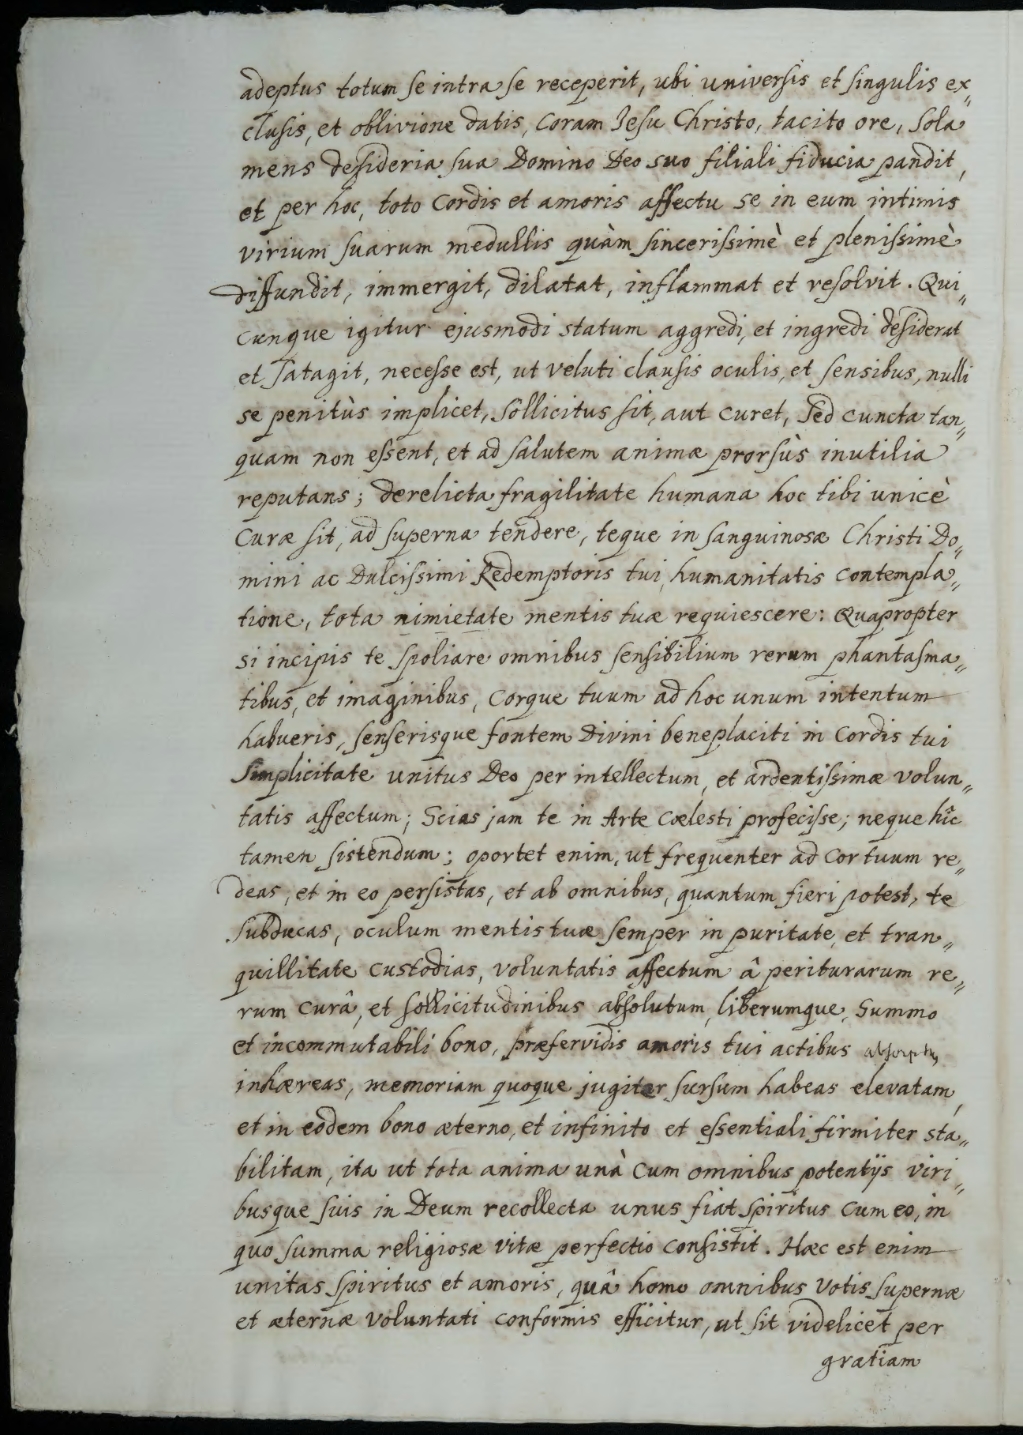 adeptus totum se intra se receperit, ubi universis et singulis ex„
clusis, et oblivione datis, coram Jesu Christo, tacito ore, sola
mens desideria sua Domino Deo suo filiali fiducia pandit,
et per hoc, toto cordis et amoris affectu se in eum intimis
virium suarum medullis quàm sincerissimè et plenissimè
diffundit, immergit, dilatat, inflammat et resolvit. Qui„
cunque igitur ejusmodi statum aggredi, et ingredi desiderat
et satagit, necesse est, ut veluti clausis oculis, et sensibus, nulli
se penitùs implicet, sollicitus sit, aut curet, sed cuncta tan„
quam non essent, et ad salutem animæ prorsùs inutilia
reputans; derelicta fragilitate humana hoc tibi unicè
curæ sit, ad superna tendere, teque in sanguinosæ Christi Do„
mini ac Dulcissimi Redemptoris tui humanitatis contempla„
tione, tota nimietate mentis tuæ requiescere: Quapropter
si incipis te spoliare omnibus sensibilium rerum phantasma„
tibus, et imaginibus, corque tuum ad hoc unum intentum
habueris, senserisque fontem Divini beneplaciti in cordis tui
simplicitate unitus Deo per intellectum, et ardentissimæ volun„
tatis affectum; Scias jam te in Arte Cœlesti profecisse; neque hîc
tamen sistendum; oportet enim, ut frequenter ad cor tuum re„
deas, et in eo persistas, et ab omnibus, quantum fieri potest, te
subducas, oculum mentis tuæ semper in puritate, et tran„
quillitate custodias, voluntatis affectum â periturarum re„
rum curâ, et sollicitudinibus absolutum, liberumque, Summo
et incommutabili bono, præfervidis amoris tui actibus absorptus
inhæreas, memoriam quoque jugiter sursum habeas elevatam,
et in eodem bono æterno, et infinito et essentiali firmiter sta„
bilitam, ita ut tota anima unà cum omnibus potentijs viri„
busque suis in Deum recollecta unus fiat spiritus cum eo, in
quo summa religiosæ vitæ perfectio consistit. Hæc est enim
unitas spiritus et amoris, quâ homo omnibus votis supernæ
et æternæ voluntati conformis efficitur, ut sit videlicet per
gratiam